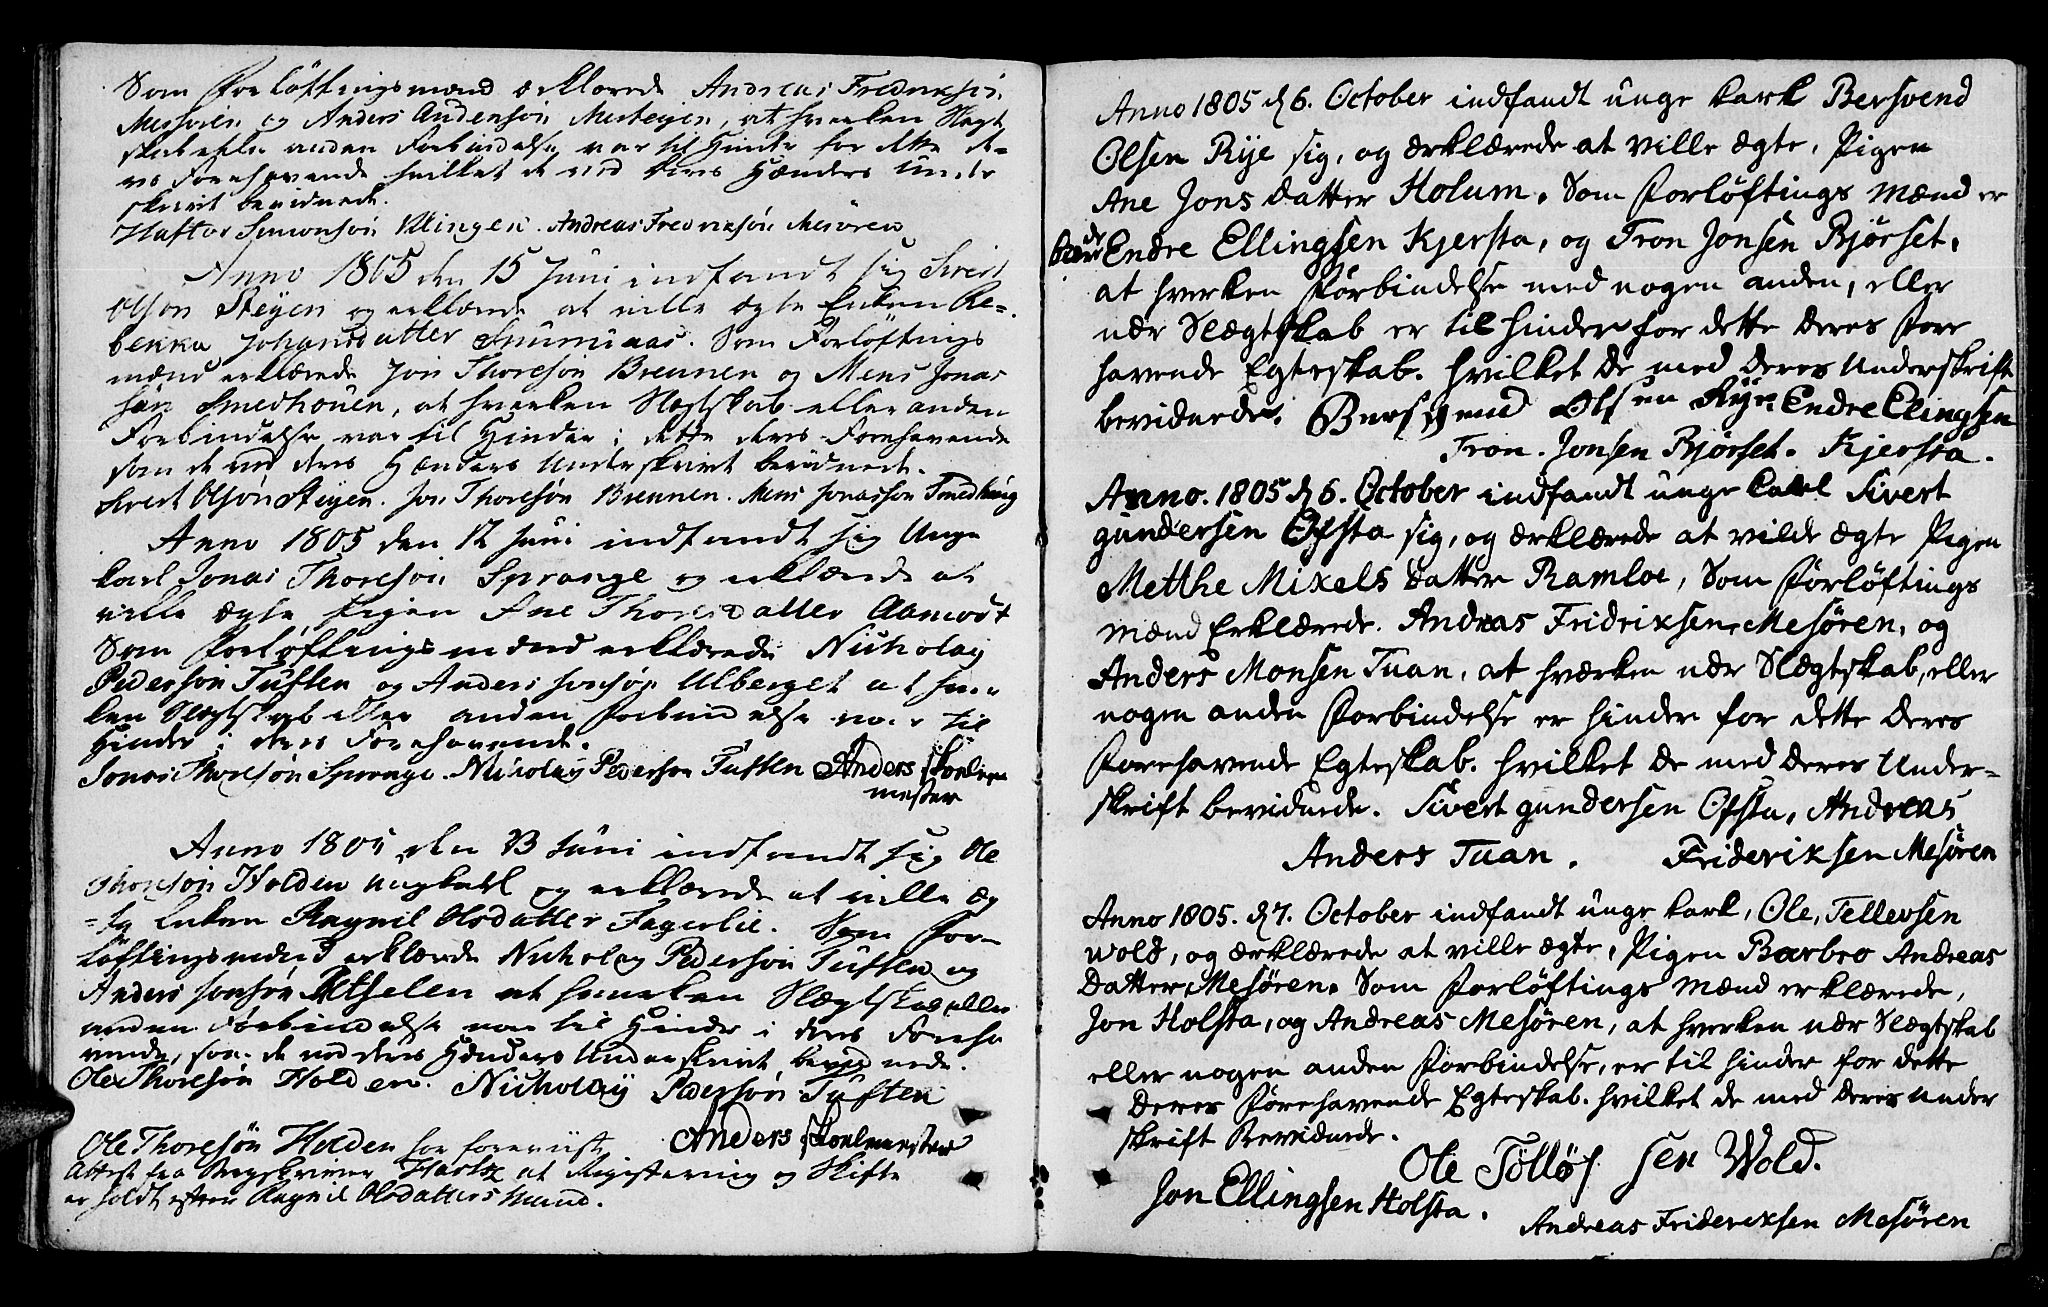 Som Forløftingsmænd erklærede Andreas Fredrikson
Messøren og Anders Andersøn Mesteigen, at hverken Slægt
skab eller anden Forbindelse var til Hinder for dette de-
res Forehavende hvilket de med deres Hænders Under
skrivt bevidnede.
Haftor Simonsøn Villingen. Andreas Fredriksøn Mesøren
Anno 1805 den 15 Juni indfandt sig Sivert
Olson Steyen og erklærede at ville ægte Enken Re-
bekka Johansdatter Snurruaas. Som Forløftings
mænd erklærede Jon Thoresøn Brennen og Mens Jonas
søn Smedhouen, at hverken Slægtskab eller anden
Forbindelse var til Hinder i dette deres Forehavende
som de med deres Hænders Underskrivt bevidnede.
Sivert Olsøn Steyen. Jon Thoresøn Brennen. Mens Jonasson Smedhoug
Anno 1805 den 12 Juni indfandt sig Unge
karl Jonas Thoresøn Sprange og erklærede at
ville ægte Pigen Ane Thoresdatter Aamodt
Som Forløftingsmænd erklærede Nicholay
Pederson Tuften og Anders Jonsøn Ulberget at hver
ken Slægtskab eller anden Forbindelse var til
Hinder i deres Forehavende.
Jonas Thoresøn Sprange. Nicolay Pederson Tuften Anders skoele
mester
Anno 1805 den 13 Juni indfandt sig Ole
Thoresøn Holden ungkarl og erklærede at ville æg
-te Enken Ragnil Olsdatter Fagerlie. Som For-
løftingsmænd erklærede Nicholay Pederson Tuften og
Anders Jonsøn at hverken Slægtskab eller
anden Forbindelse var til Hinder i deres Foreha
vende, som de med deres Hænders Underskrivt bevidnede.
Ole Thoresøn Holden. Nicholay Pederson Tuften
Anders skoelmester
Ole Thoresøn Holden har foreviist
Attest fra Sorgskriver at Registering og Skifte
er holdt efter Ragnil Olsdatters Mand.
Anno 1805 d 6. October indfandt unge karl Bersvend
Olsen Rye sig, og ærklærede at ville ægte, Pigen
Ane Jons datter Holum. Som Forløftings Mænd er
Endre Ellingsen Kjersta, og Tron Jonsen Bjørset,
at hverken Forbindelse med nogen anden, eller
nær Slægtskab er til hinder for dette deres Fore
havende Egteskab. hvilket De med Deres Underskrift
bevidnede. Bersvend Olsen Rye. Endre Elingsen
Tron. Jonsen Bjørset. Kjersta.
Anno. 1805 d 6. October indfandt unge karl Sivert
gundersen Ofsta sig, og ærklærede at vilde ægte Pigen
Metthe Mikels datter Ramloe, Som Forløftings
Mænd Erklærede. Andreas Fridriksen Mesøren, og
Anders Monsen Tuan, at hværken nær Slægtskab, eller
nogen anden Forbindelse er hinder for dette Deres
Forehavende Egteskab. hvilket De med Deres Under-
skrift bevidnede. Sivert gundersen Ofsta, Andreas
Anders Tuan. Frideriksen Mesøren
Anno 1805. d 7. October indfandt unge karl, Ole, Tellevsen
Wold, og ærklærede at ville ægte, Pigen Barbro Andreas
Datter Mesøren. Som Forløftings Mænd erklærede,
Jon Holsta, og Andreas Mesøren, at hverken nær Slægtskab
eller nogen anden Forbindelse, er til hinder for dette
Deres Forehavende Egteskab. hvilket de med deres under
skrift Bevidnede.
Ole Tølløf sen Wold.
Jon Ellingsen Holsta.
Andreas Frideriksen Mesøren